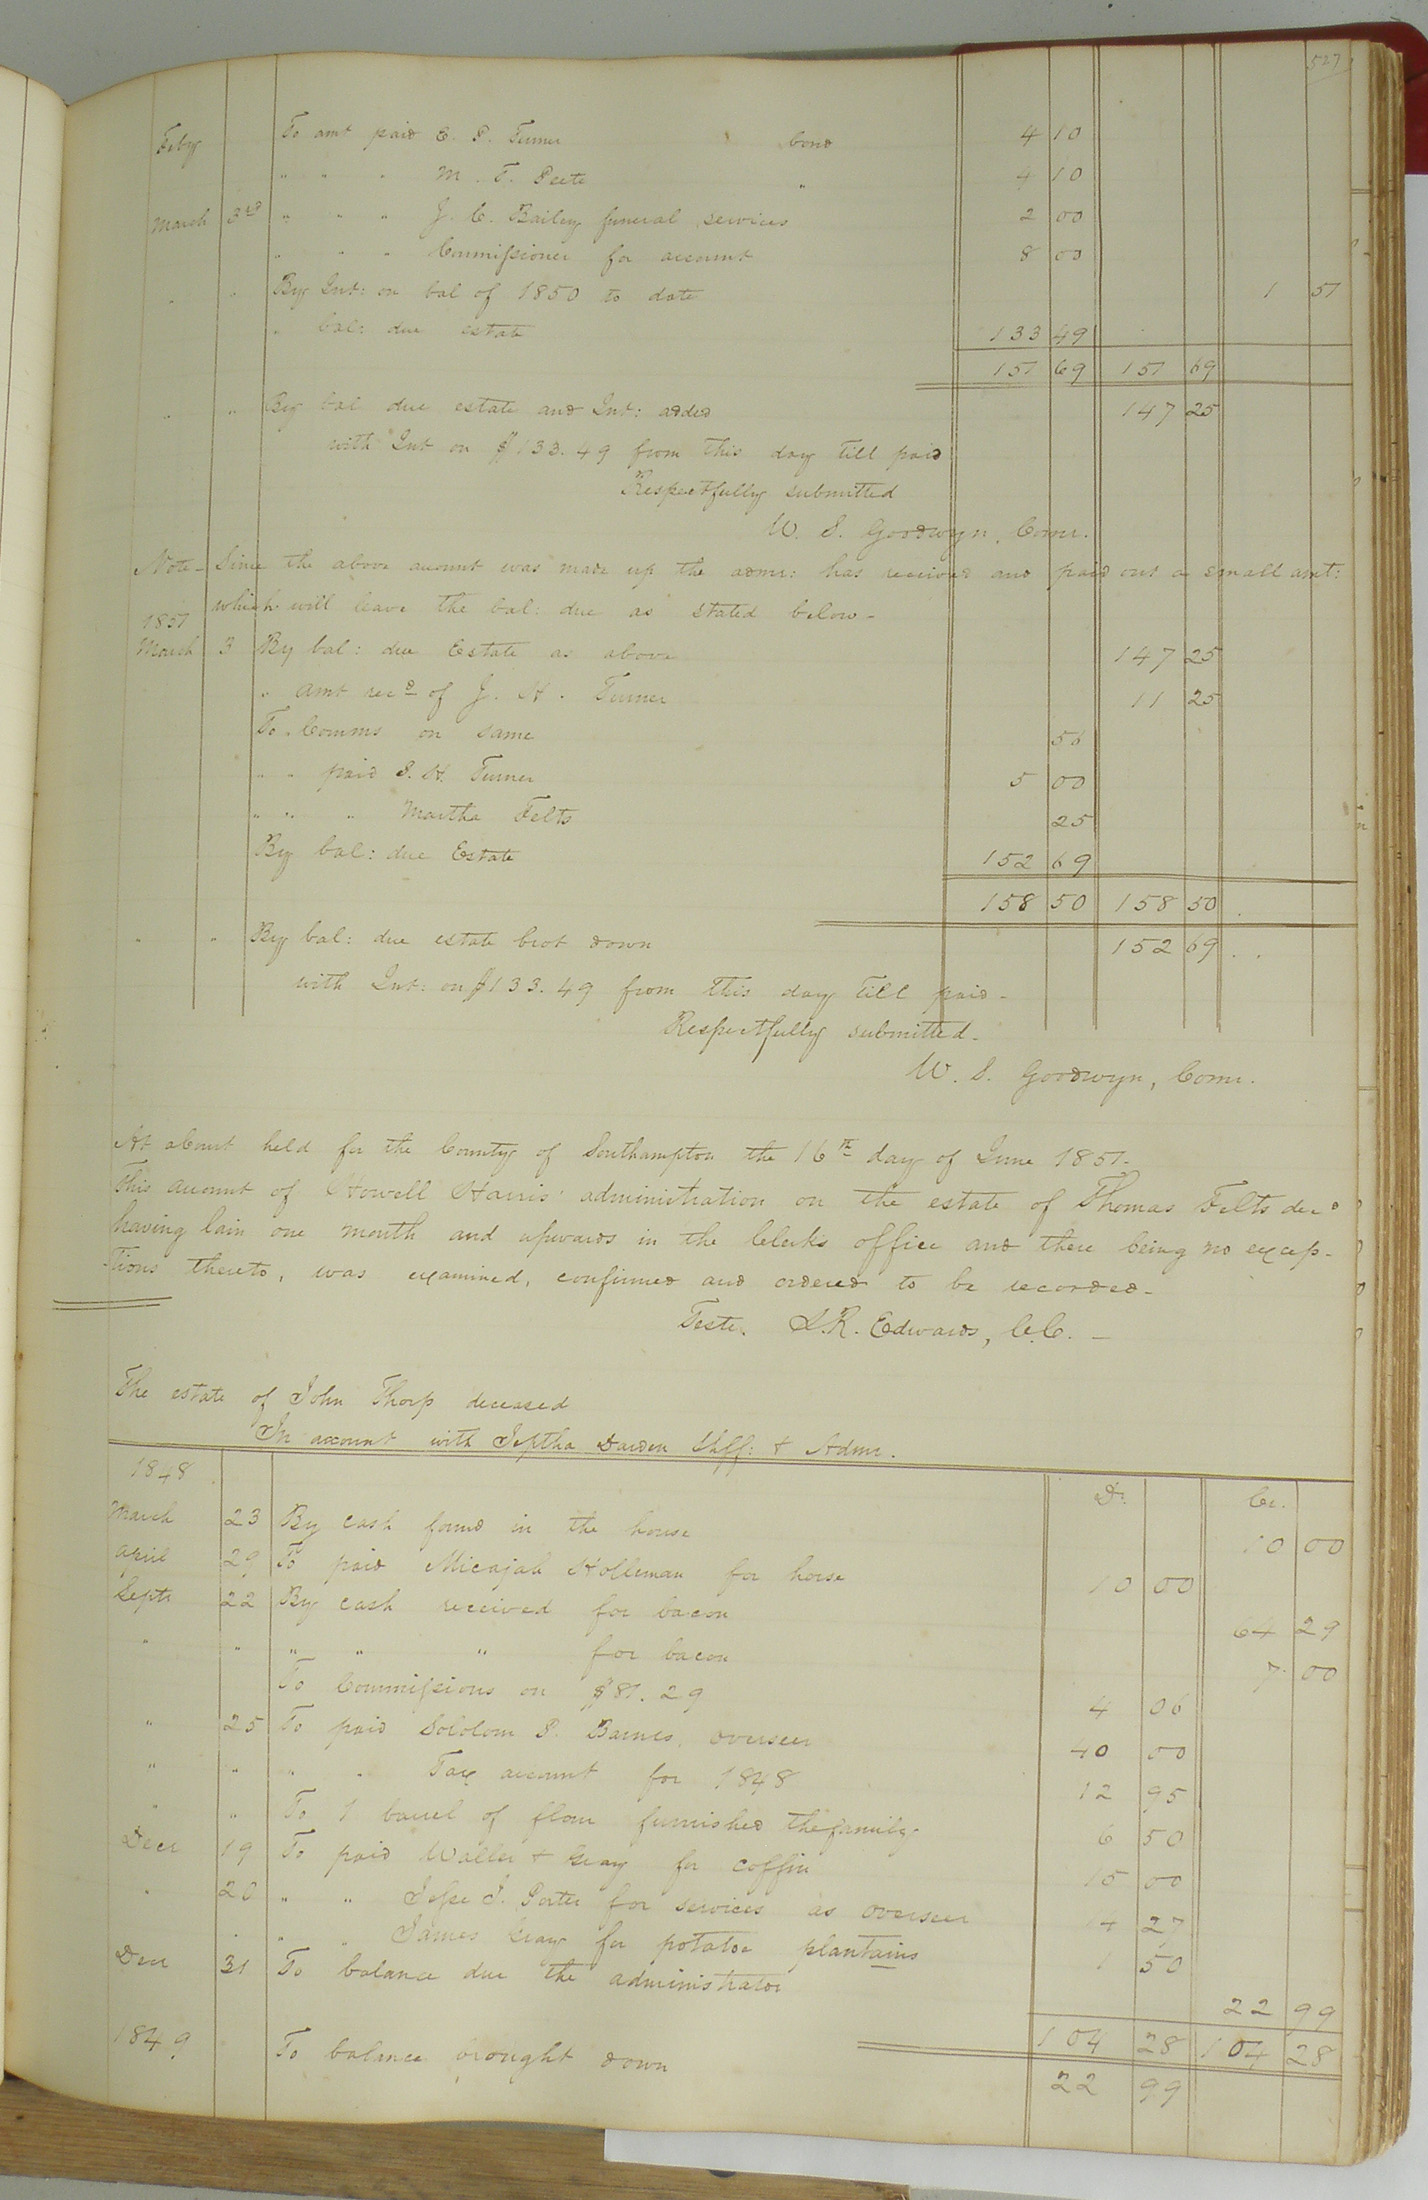 527
Feby To amt paid E. P. Turner bond 4 10
" " " M. T. Peete " 4 10
March 3rd " " " J. C. Bailey funeral services 2 00
" " " Commissioner for account 8 00
" " By Int: on bal of 1850 to date 1 51
" bal: due estate 133 49
151 69 151 69
" " By bal due estate and Int: added 147 25
with Int on $133.49 from this day till paid
Respectfully submitted
W. S. Goodwyn, Comr.
Note - Since the above account was made up the admr: has received and paid out a small amt:
which will leave the bal: due as stated below -
1851
March 3 By bal: due Estate as above 147 25
" amt recd of J. H. Turner 11 25
To Comms on same 56
" " paid S. H. Turner 5 00
" " " Martha Felts 25
By bal: due Estate 152 69
158 50 158 50
" " By bal: due estate brot down 152 69
with Int: on $133.49 from this day till paid -
Respectfully submitted -
W. S. Goodwyn, Comr.
At a Court held for the County of Southampton the 16th day of June 1851 -
This account of Howell Harris' administration on the estate of Thomas Felts decd
having lain one month and upwards in the Clerks office and there being no excep-
-tions thereto, was examined, confirmed and ordered to be recorded -
Teste. L. R. Edwards, C.C. -
The estate of John Thorp deceased
In account with Jeptha Darden Shff: & Admr.
1848 Dr. Cr.
March 23 By cash found in the house 10 00
April 29 To paid Micajah Holleman for horse 10 00
Septr 22 By cash received for bacon 64 29
" " " " " for bacon 7 00
To Commissions on $81.29 4 06
" 25 To paid Sololom P. Barnes, overseer 40 00
" " " " Tax account for 1848 12 95
" " To 1 barrel of flour furnished the family 6 50
Decr 19 To paid Waller & Gray for coffin 15 00
" 20 " " Jesse J. Porter for services as overseer 14 27
" " " James Gray for potatoe plantains 1 50
Decr 31 To balance due the administrator 22 99
104 28 104 28
1849 To balance brought down 22 99